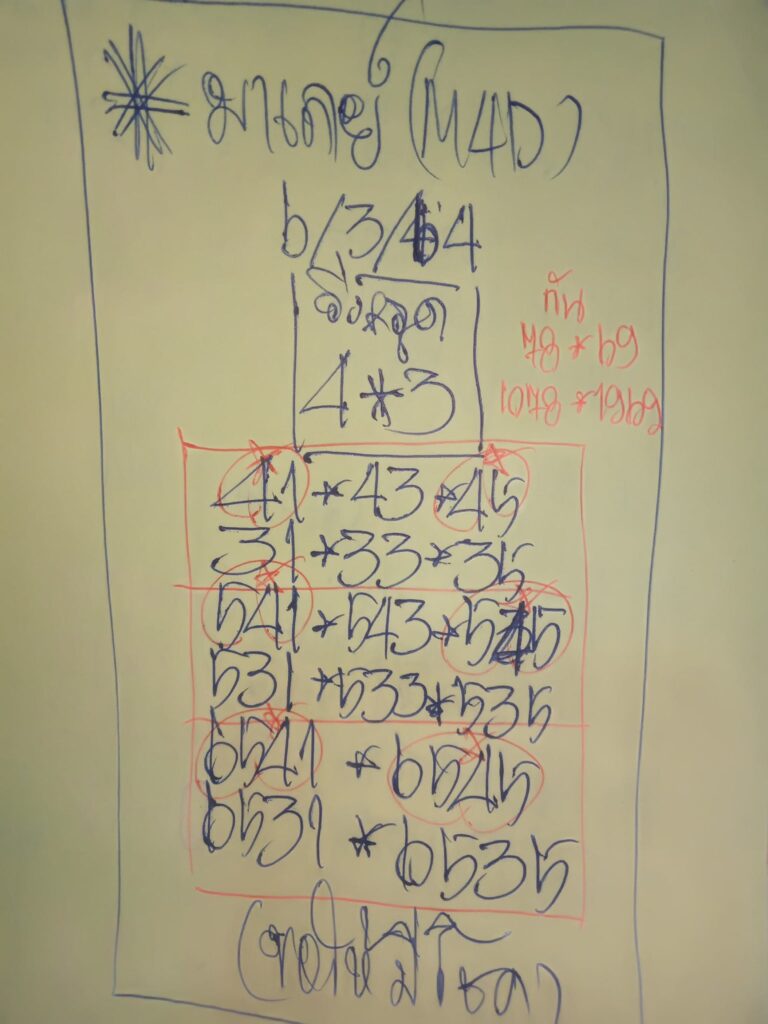 มาเลย์ (M4D)
6/3/64
วิ่งหลุด
4*3
กัน
78*69
1078*1969
41*43*45
31*33*35
541*543*545
531*533*535
6541*6545
6531*6535
(ขอให้มีโชค)